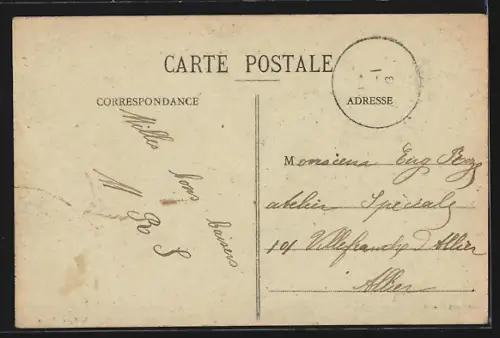 CARTE POSTALE
CORRESPONDANCE
ADRESSE
Milles
bons
baisers
M R S
Monsieur Eug
atelier Spéciale
Villefranche d'Allier
Allier